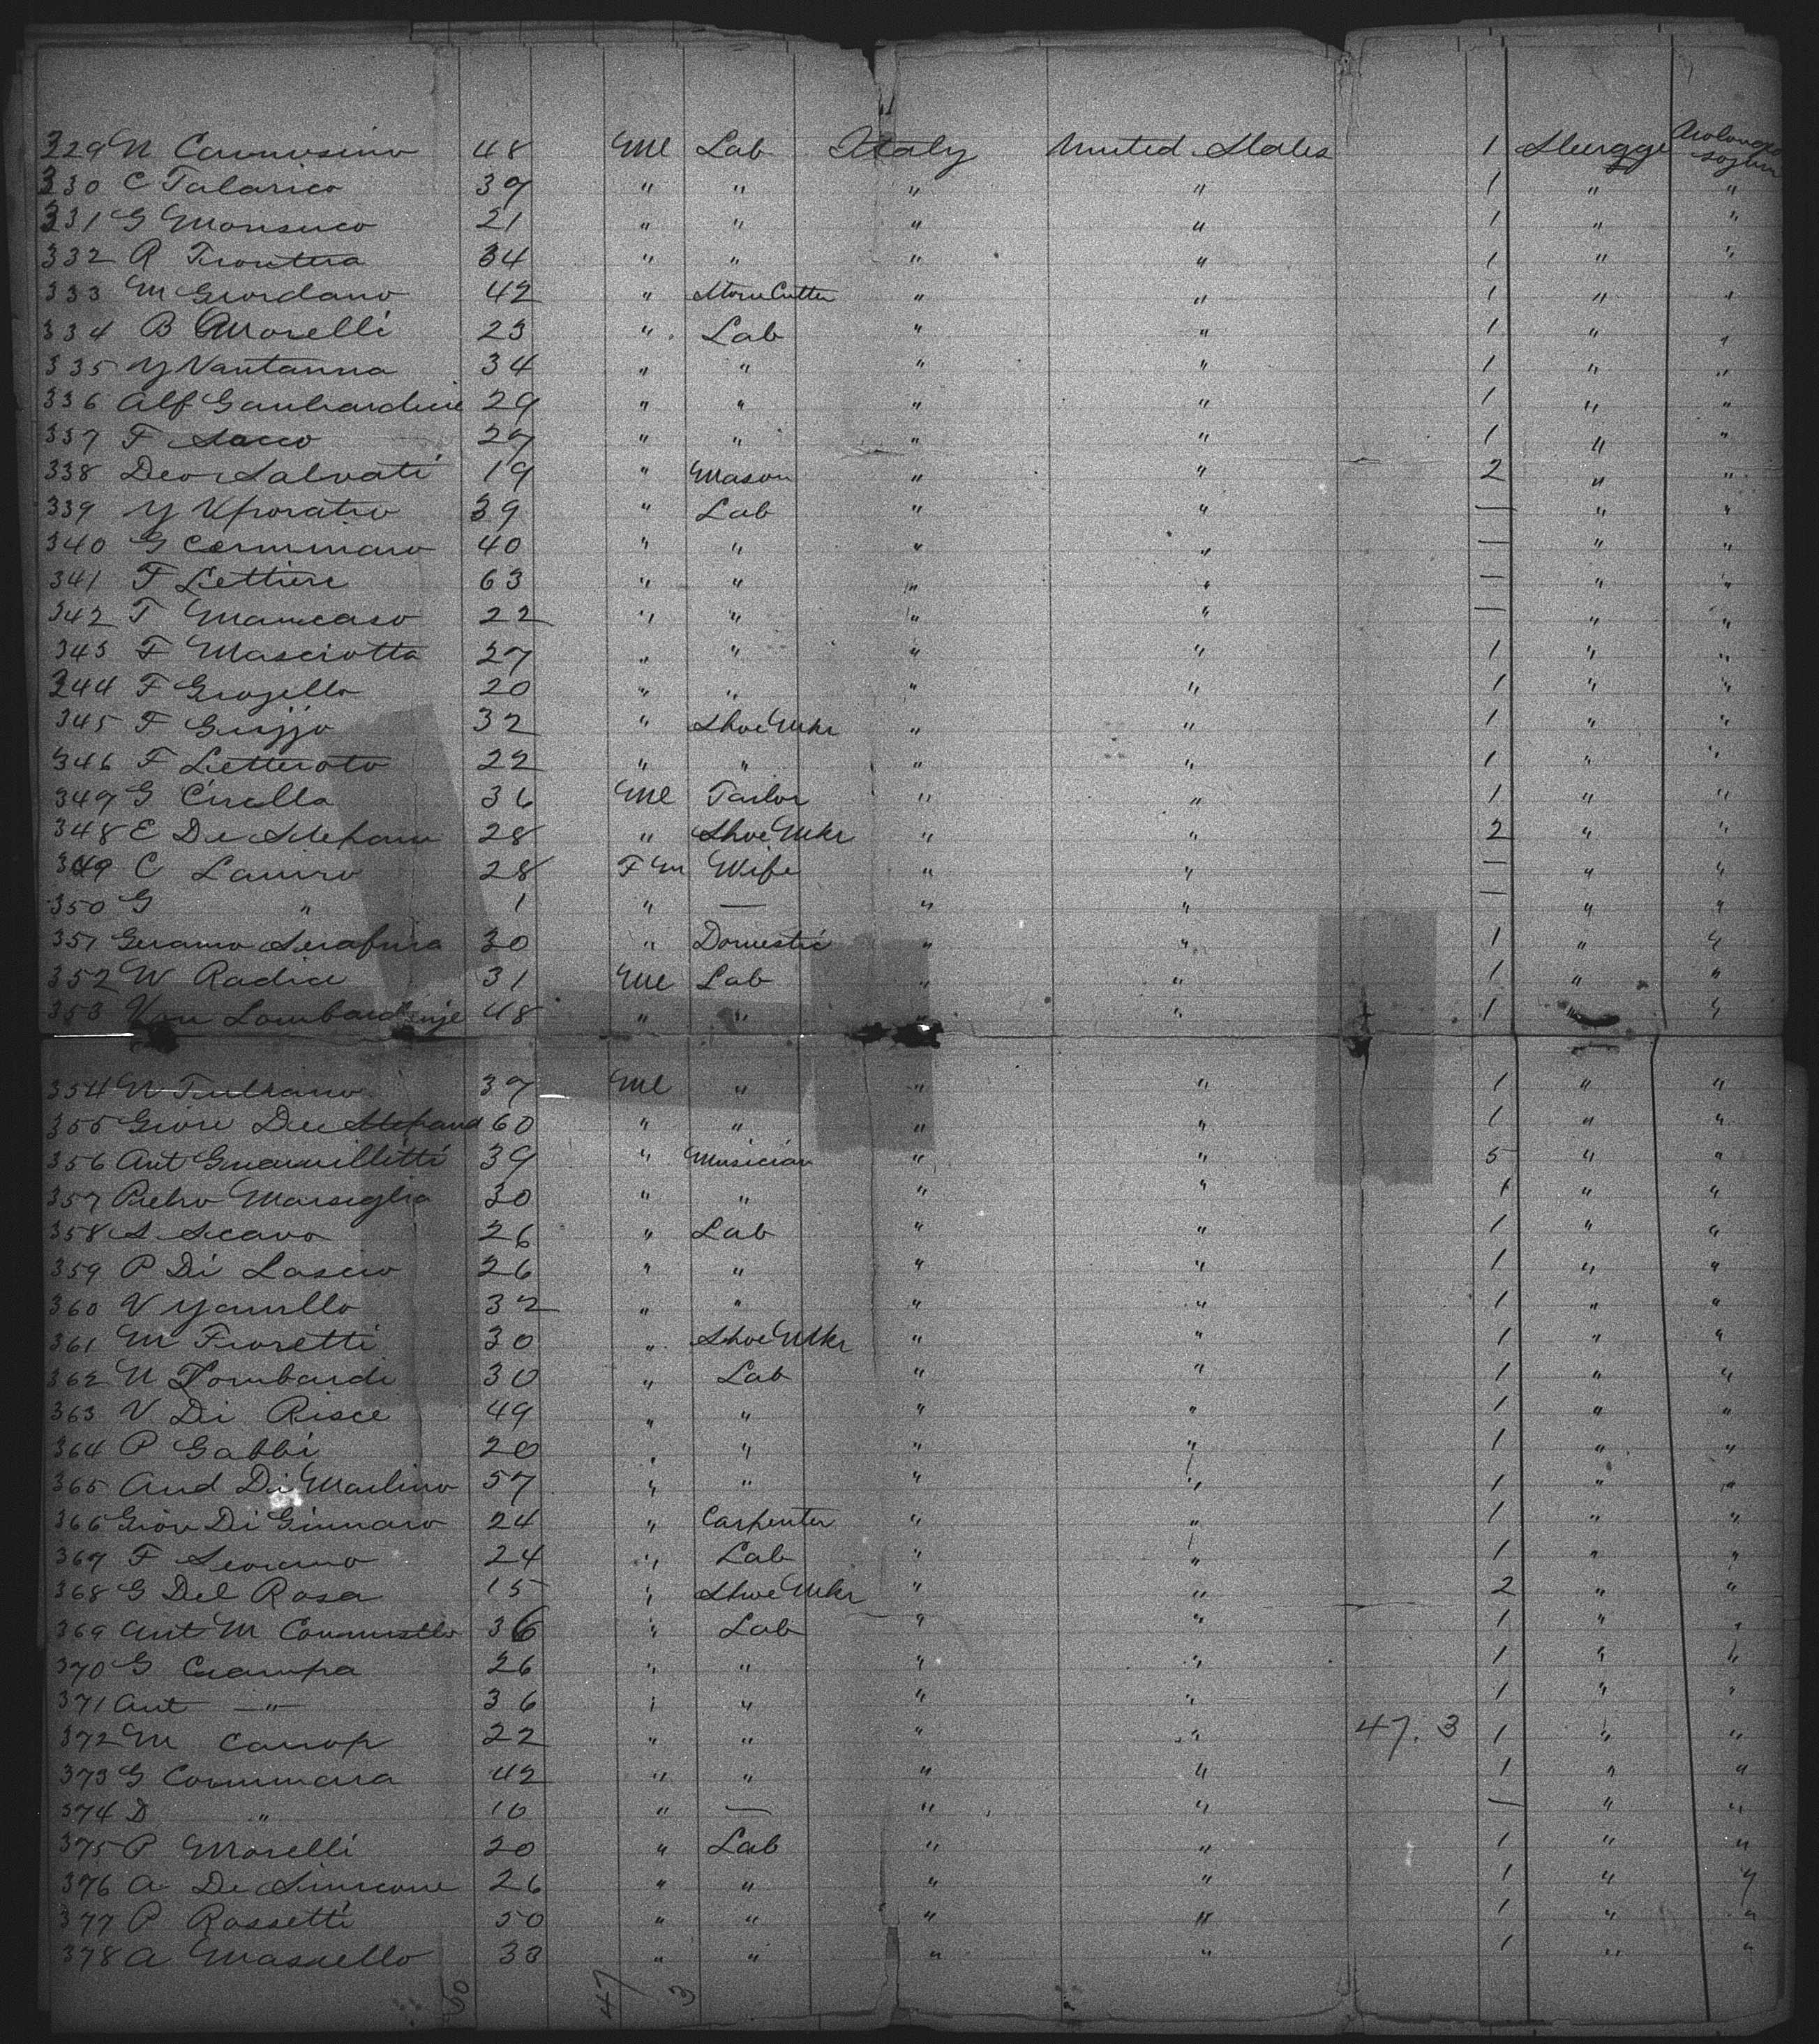 329 N Cannosino 48 Ml Lab Italy United States 1 Sturgge Prolonged sojurn
330 C Talarico 39 " " " " 1 " "
331 G Monsuco 21 " " " " 1 " "
332 R Frontera 34 " " " " 1 " "
333 M Giordano 42 " Stone Cutter " " 1 " "
334 B Morelli 23 " Lab " " 1 " "
335 Y Vantanna 34 " " " " 1 " "
336 Alf 29 " " " " 1 " "
337 F Sacco 27 " " " " 1 " "
338 Deo Salvati 19 " Mason " " 2 " "
339 Y 39 " Lab " " — " "
340 G Cerminaro 40 " " " " — " "
341 F Liettieri 63 " " " " — " "
342 T Mancaso 22 " " " " — " "
343 F Masciotta 27 " " " " 1 " "
344 F Grozello 20 " " " " 1 " "
345 F Guzzo 32 " Shoe Mkr " " 1 " "
346 F Lietteroto 22 " " " " 1 " "
347 G Cirella 36 Ml Tailor " " 1 " "
348 E De Stefano 28 " Shoe Mkr " " 2 " "
349 C Lauiro 28 F m Wife " " — " "
350 G " 1 " — " " — " "
351 Geramo Serafina 30 " Domestic " " 1 " "
352 W Radice 31 Ml Lab " " 1 " "
353 Lombard 48 " " " " 1 " "
354 N 37 Ml " " " 1 " "
355 Giore De Stefano 60 " " " " 1 " "
356 Ant 39 " Musician " " 5 " "
357 Pietro Marsiglia 30 " " " " 1 " "
358 S Scavo 26 " Lab " " 1 " "
359 P Di Lascio 26 " " " " 1 " "
360 V Yanullo 32 " " " " 1 " "
361 M Fioretti 30 " Shoe Mkr " " 1 " "
362 N Lombardi 30 " Lab " " 1 " "
363 V Di Risce 49 " " " " 1 " "
364 P Gabbi 20 " " " " 1 " "
365 And Di Martino 57 " " " " 1 " "
366 Giov Di Ginnaro 24 " Carpenter " " 1 " "
367 F 24 " Lab " " 1 " "
368 G Del Rosa 15 " Shoe Mkr " " 2 " "
369 Ant M 36 " Lab " " 1 " "
370 G Ciampa 26 " " " " 1 " "
371 Ant — " — 36 " " " " 1 " "
372 M 22 " " " " 47. 3 1 " "
373 G Commara 42 " " " " 1 " "
374 D " 10 " — " " — " "
375 P Morelli 20 " Lab " " 1 " "
376 A De Simeone 26 " " " " 1 " "
377 P Rossetti 50 " " " " 1 " "
378 A Masuello 33 " " " " 1 " "
50 47 3